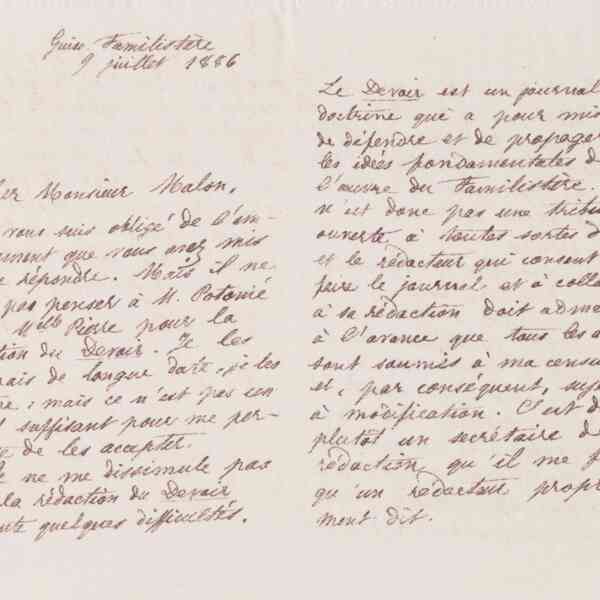 Guise Familistère
9 juillet 1886
her Monsieur Malon,
vous suis obligé de l'em-
ement que vous avez mis
e répondre. Mais il ne
pas penser à M. Potonié
Melle Pierre pour la
tion du Devoir. Je les
nais de longue date, je les
me, mais ce n'est pas
suffisant pour me per-
e de les accepter.
Je ne me dissimule pas
la rédaction du Devoir
ente quelques difficultés.
Le Devoir est un journal
doctrine qui a pour mis
de défendre et de propager
les idées fondamentales d
l'œuvre du Familistère.
n'est donc pas une tribu
ouverte à toutes sortes d
et le rédacteur qui consent
faire le journal et à colla
à sa rédaction doit adme
à l'avance que tous les a
sont soumis à ma censu
et, par conséquent, suje
à modification. C'est d
plutôt un secrétaire de
rédaction, qu'il me f
qu'un rédacteur propre
ment dit.